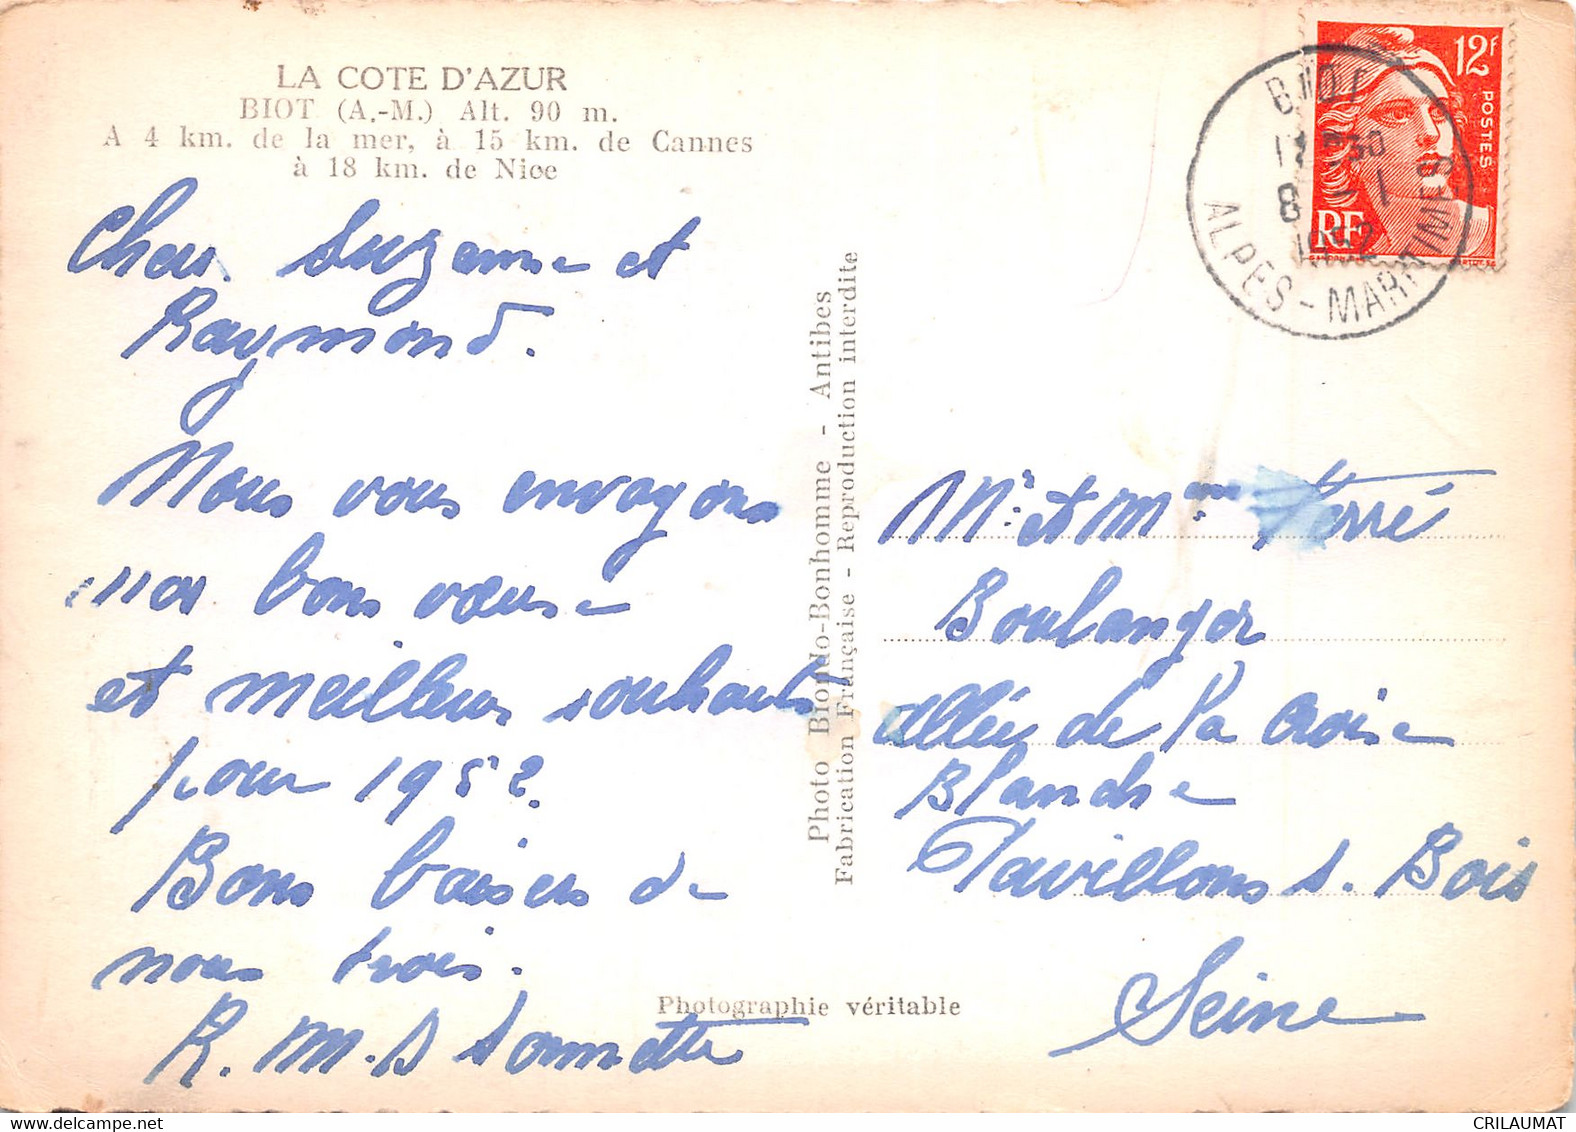 LA COTE D'AZUR
BIOT (A.-M.) Alt. 90 m.
A 4 km. de la mer, à 15 km. de Cannes
à 18 km. de Nice
Chers Suzanne et
Raymond.
Nous vous envoyons
nos bons vœux
et meilleurs souhaits
pour 1952.
Bons baisers de
nous trois.
R. M. S
Photo Biondo-Bonhomme - Antibes
Fabrication Française - Reproduction interdite
Photographie véritable
12F
POSTES
RF
BIOT
8 - 1
1952
ALPES-MARITIMES
Mr et Mme Ferré
Boulanger
allée de la Croise
Blanche
Pavillons s. Bois
Seine
CRILAUMAT